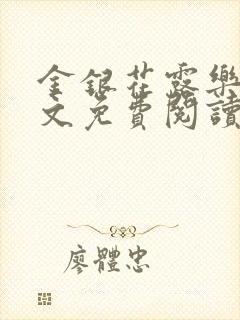 金銀花露樂
文免費閱讀
廖體忠